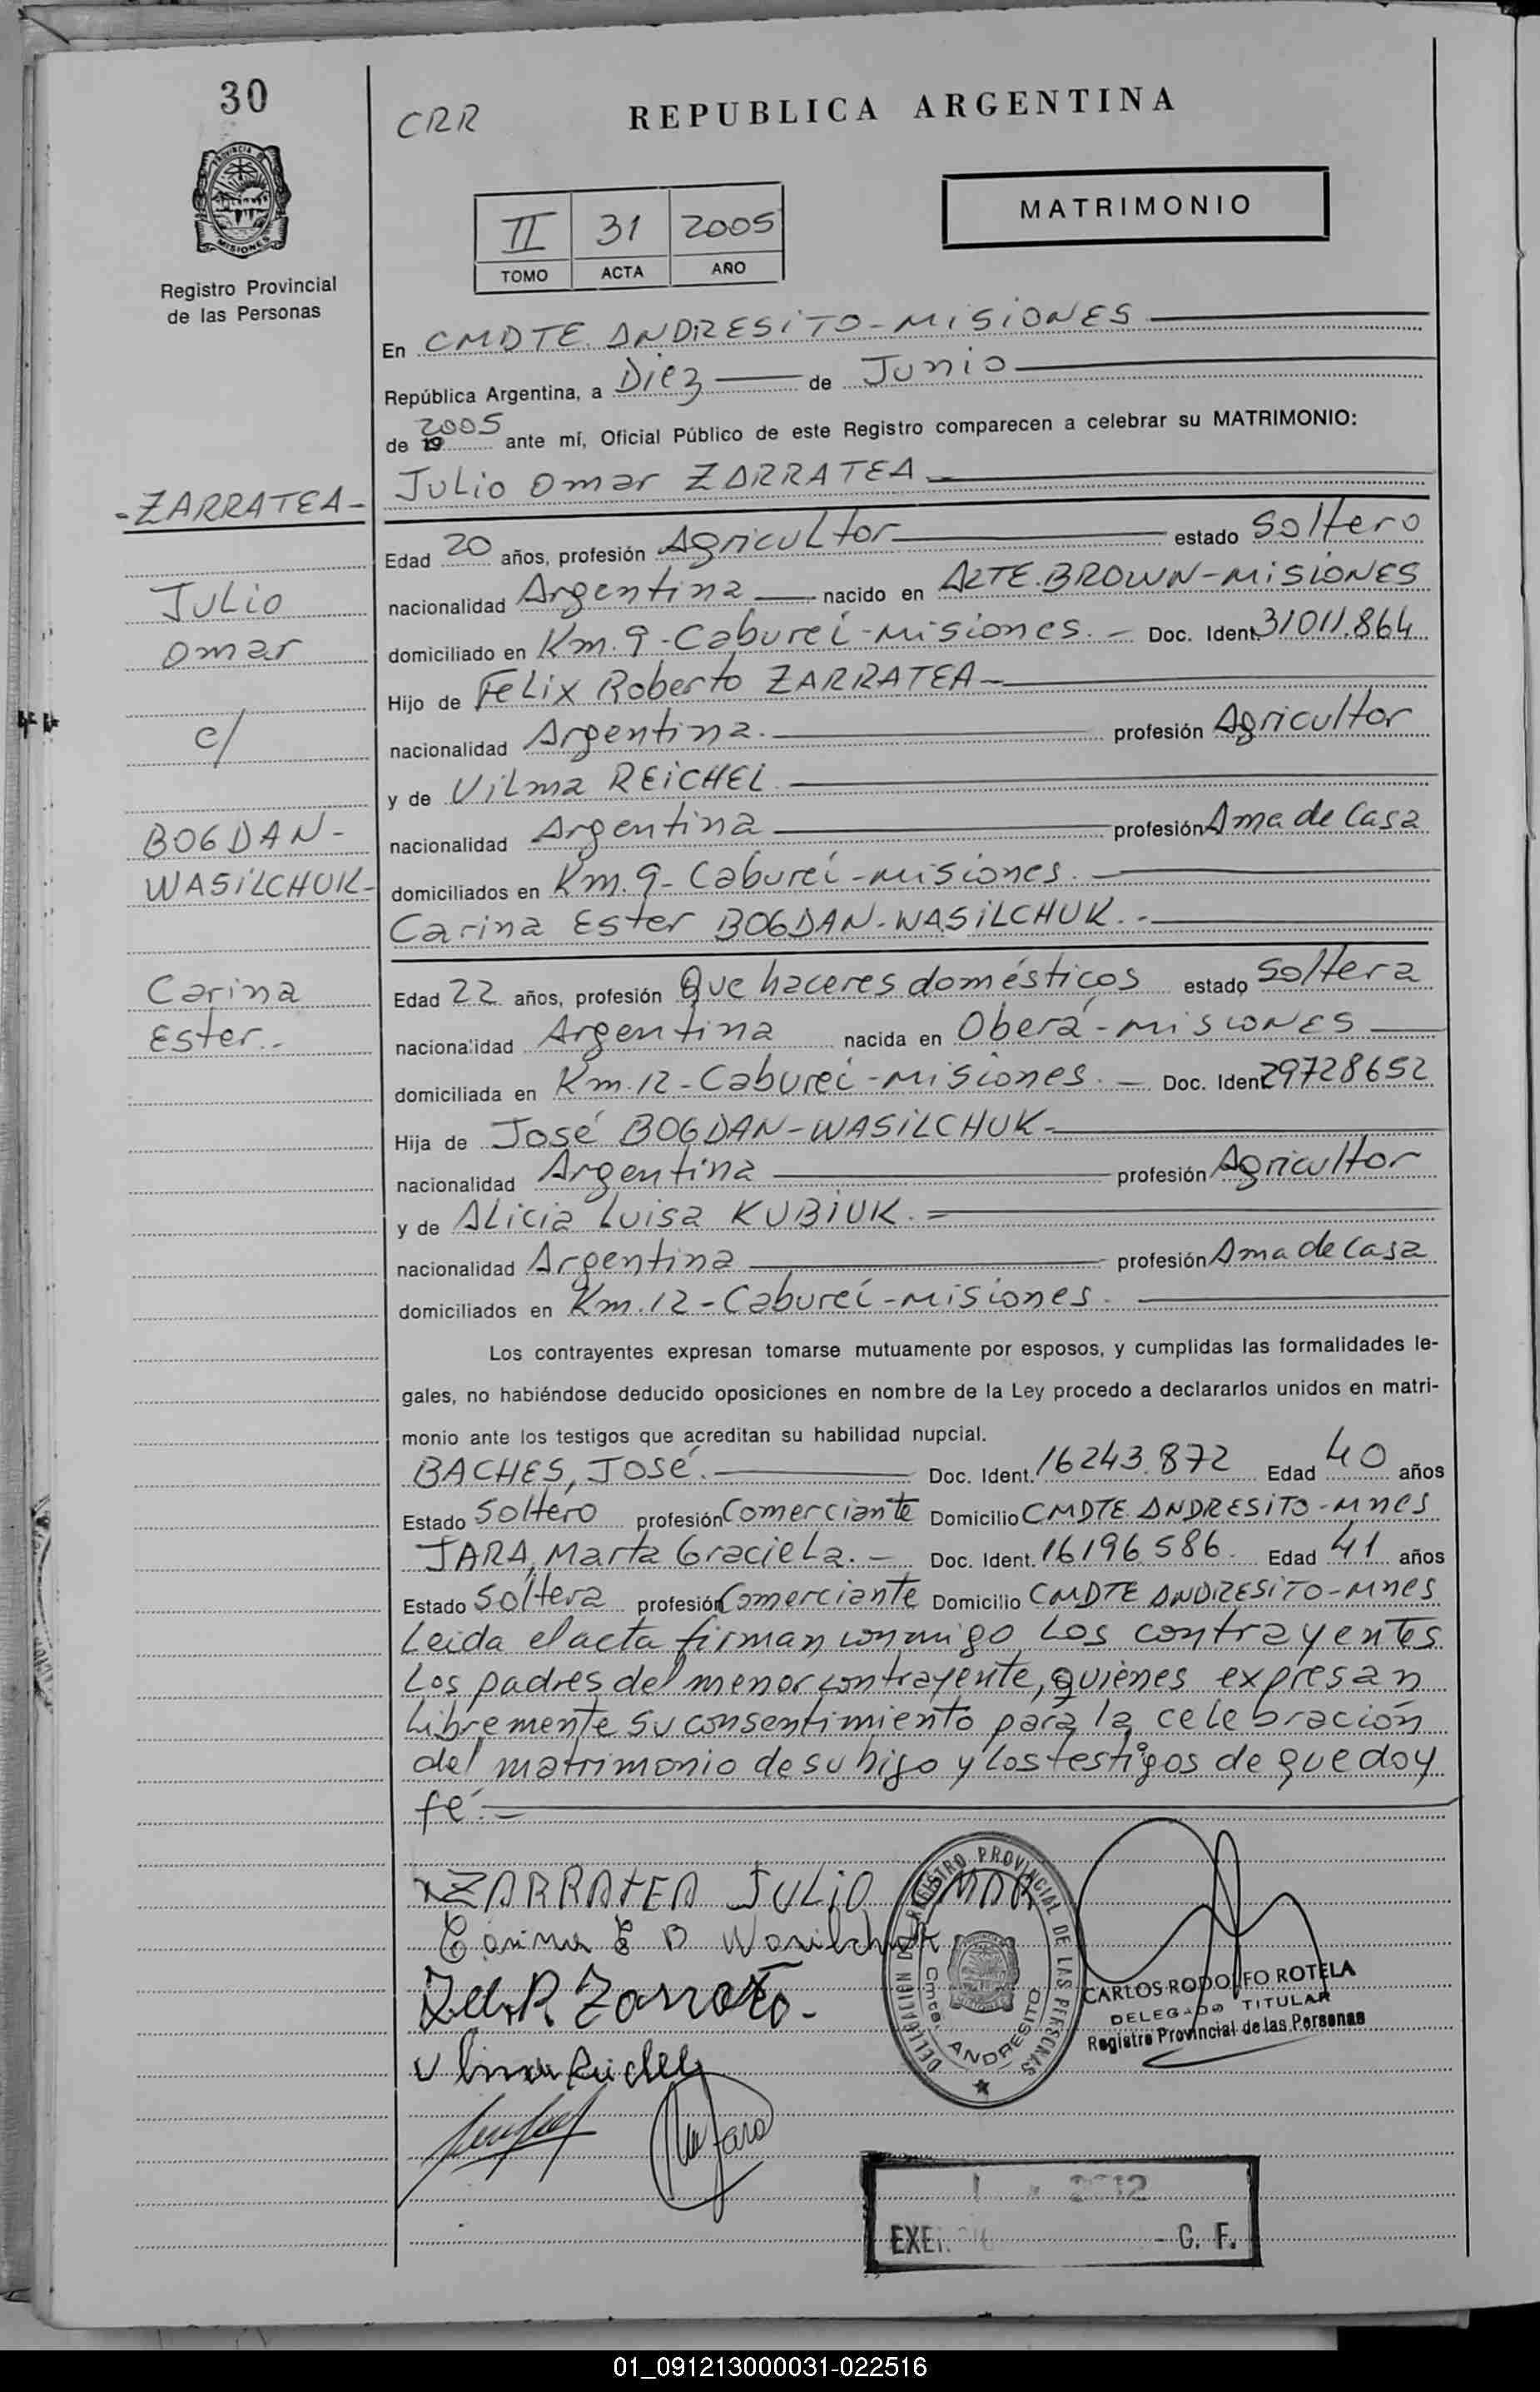 30
CRR
REPUBLICA ARGENTINA
PROVINCIA DE
MISIONES
Registro Provincial
de las Personas
II 31 2005
TOMO ACTA AÑO
MATRIMONIO
En CMDTE. ANDRESITO - MISIONES
República Argentina, a Diez de Junio
de 19 2005 ante mí, Oficial Público de este Registro comparecen a celebrar su MATRIMONIO:
Julio Omar ZARRATEA
- ZARRATEA -
Julio
Omar
c/
BOGDAN-
WASILCHUK-
Carina
Ester.-
Edad 20 años, profesión Agricultor estado Soltero
nacionalidad Argentina nacido en ALTE. BROWN - MISIONES
domiciliado en Km. 9 - Cabureí - Misiones. - Doc. Ident. 31011.864
Hijo de Felix Roberto ZARRATEA -
nacionalidad Argentina. profesión Agricultor
y de Vilma REICHEL
nacionalidad Argentina profesión Ama de Casa
domiciliados en Km. 9 - Cabureí - Misiones.
Carina Ester BOGDAN-WASILCHUK. -
Edad 22 años, profesión Que haceres domésticos estado Soltera
nacionalidad Argentina nacida en Oberá - MISIONES
domiciliada en Km. 12 - Cabureí - Misiones. - Doc. Ident. 29728652
Hija de José BOGDAN-WASILCHUK -
nacionalidad Argentina profesión Agricultor
y de Alicia Luisa KUBIUK.
nacionalidad Argentina profesión Ama de Casa
domiciliados en Km. 12 - Cabureí - Misiones.
Los contrayentes expresan tomarse mutuamente por esposos, y cumplidas las formalidades le-
gales, no habiéndose deducido oposiciones en nombre de la Ley procedo a declararlos unidos en matri-
monio ante los testigos que acreditan su habilidad nupcial.
BACHES, JOSÉ. Doc. Ident. 16243.872 Edad 40 años
Estado Soltero profesión Comerciante Domicilio CMDTE. ANDRESITO - Mnes
JARA, Marta Graciela. - Doc. Ident. 16196.586. Edad 41 años
Estado Soltera profesión Comerciante Domicilio CMDTE ANDRESITO - Mnes
Leida el acta firman conmigo Los contrayentes
Los padres del menor contrayente, quienes expresan
libremente su consentimiento para la celebración
del matrimonio de su hijo y los testigos de que doy
fé. -
ZARRATEA JULIO OMAR
Carina E B Wasilchuk
DELEGACIÓN DEL REGISTRO PROVINCIAL DE LAS PERSONAS
Cmte. ANDRESITO
CARLOS RODOLFO ROTELA
DELEGADO TITULAR
Registro Provincial de las Personas
C. F.
01_091213000031-022516